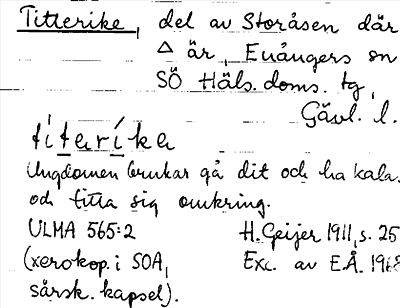 Titterike, del av Storåsen där
△ är, Enångers sn
SÖ Häls. doms. tg,
Gävl. l.
títeríka
Ungdomen brukar gå dit och ha kalas
och titta sig omkring.
ULMA 565:2 H. Geijer 1911, s. 25
(xerokop. i SOA, Exc. av E.Å. 1968
särsk. kapsel).